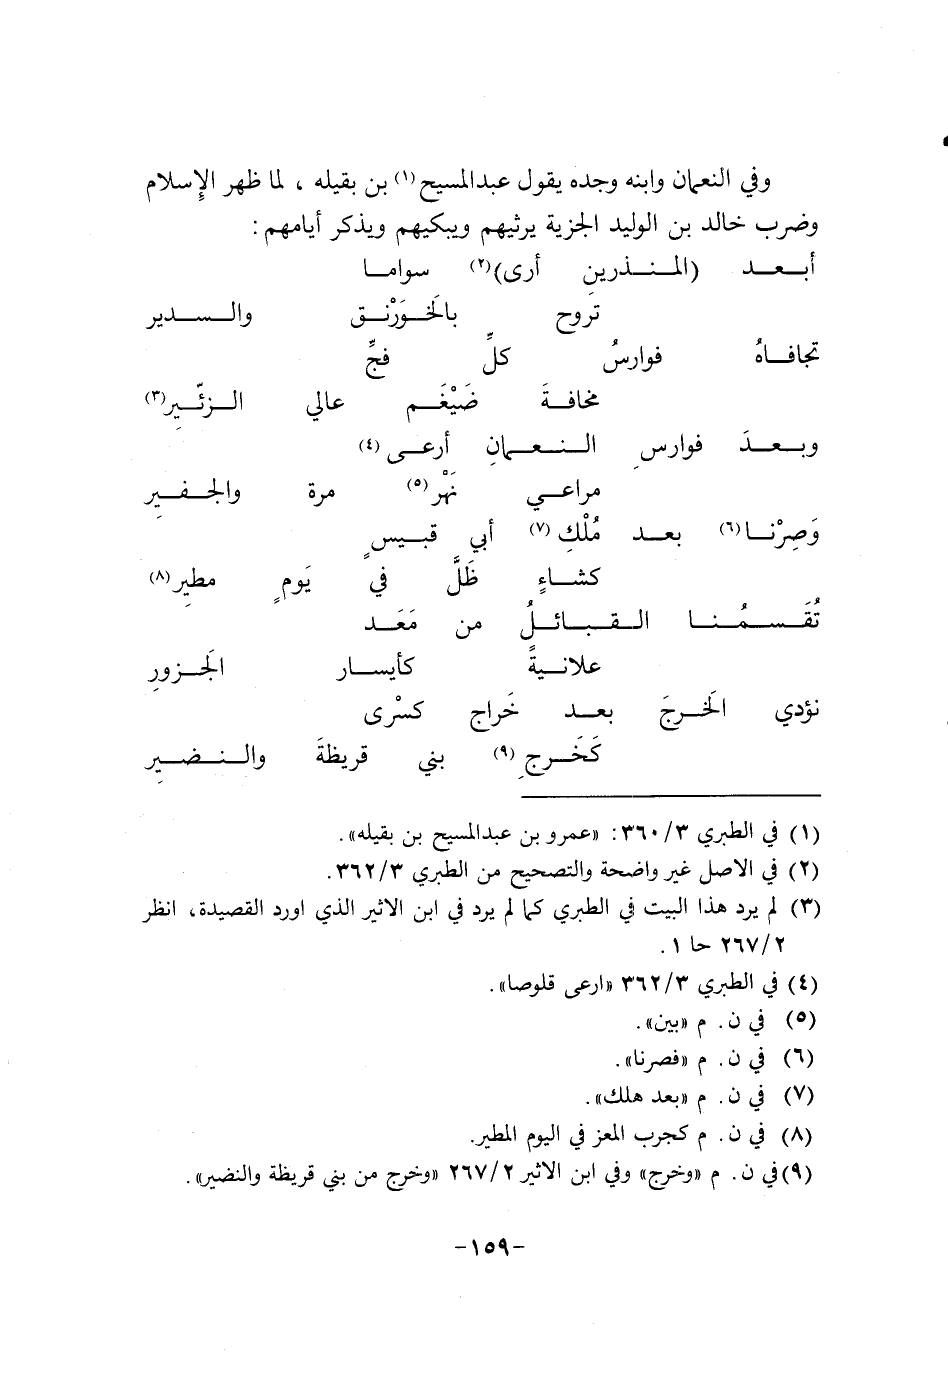 وفي النعمان وابنه وجده يقول عبدالمسيح(١) بن بقيله ، لما ظهر الإسلام
وضرب خالد بن الوليد الجزية يرثيهم ويبكيهم ويذكر أيامهم :
أبعد (المنذرين أرى)(٢) سواما
تَروح بالخَوَرْنق والسدير
تجافاهُ فوارسُ كلِّ فجٍّ
مخافةَ ضَيْغَم عالي الزئّيرِ(٣)
وبعدَ فوارسِ النعمانِ أرعى (٤)
مراعي نَهْر(٥) مرة والجفيرِ
وَصِرْنا(٦) بعد مُلْكِ(٧) أبي قبيسٍ
كشاءٍ ظَلَّ في يَومٍ مطيرِ(٨)
تُقَسمُنا القبائلُ من مَعَد
علانيةً كأيسار الجَزورِ
نؤدي الخَرجَ بعد خَراج كسْرى
كَخَرجِ(٩) بني قريظةَ والنضيرِ
(١) في الطبري ٣/ ٣٦٠: «عمرو بن عبدالمسيح بن بقيله».
(٢) في الاصل غير واضحة والتصحيح من الطبري ٣/ ٣٦٢.
(٣) لم يرد هذا البيت في الطبري كما لم يرد في ابن الاثير الذي اورد القصيدة، انظر
٢/ ٢٦٧ حا ١ .
(٤) في الطبري ٣/ ٣٦٢ «ارعى قلوصا».
(٥) في ن. م «بين».
(٦) في ن. م «فصرنا».
(٧) في ن. م «بعد هلك».
(٨) في ن. م كجرب المعز في اليوم المطير.
(٩)في ن. م «وخرج» وفي ابن الاثير ٢/ ٢٦٧ «وخرج من بني قريظة والنضير».
-١٥٩-